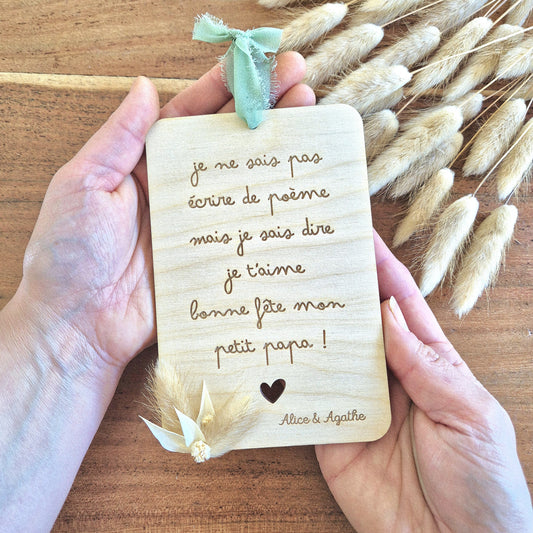 je ne sais pas
écrire de poème
mais je sais dire
je t'aime
bonne fête mon
petit papa !
Alice & Agathe